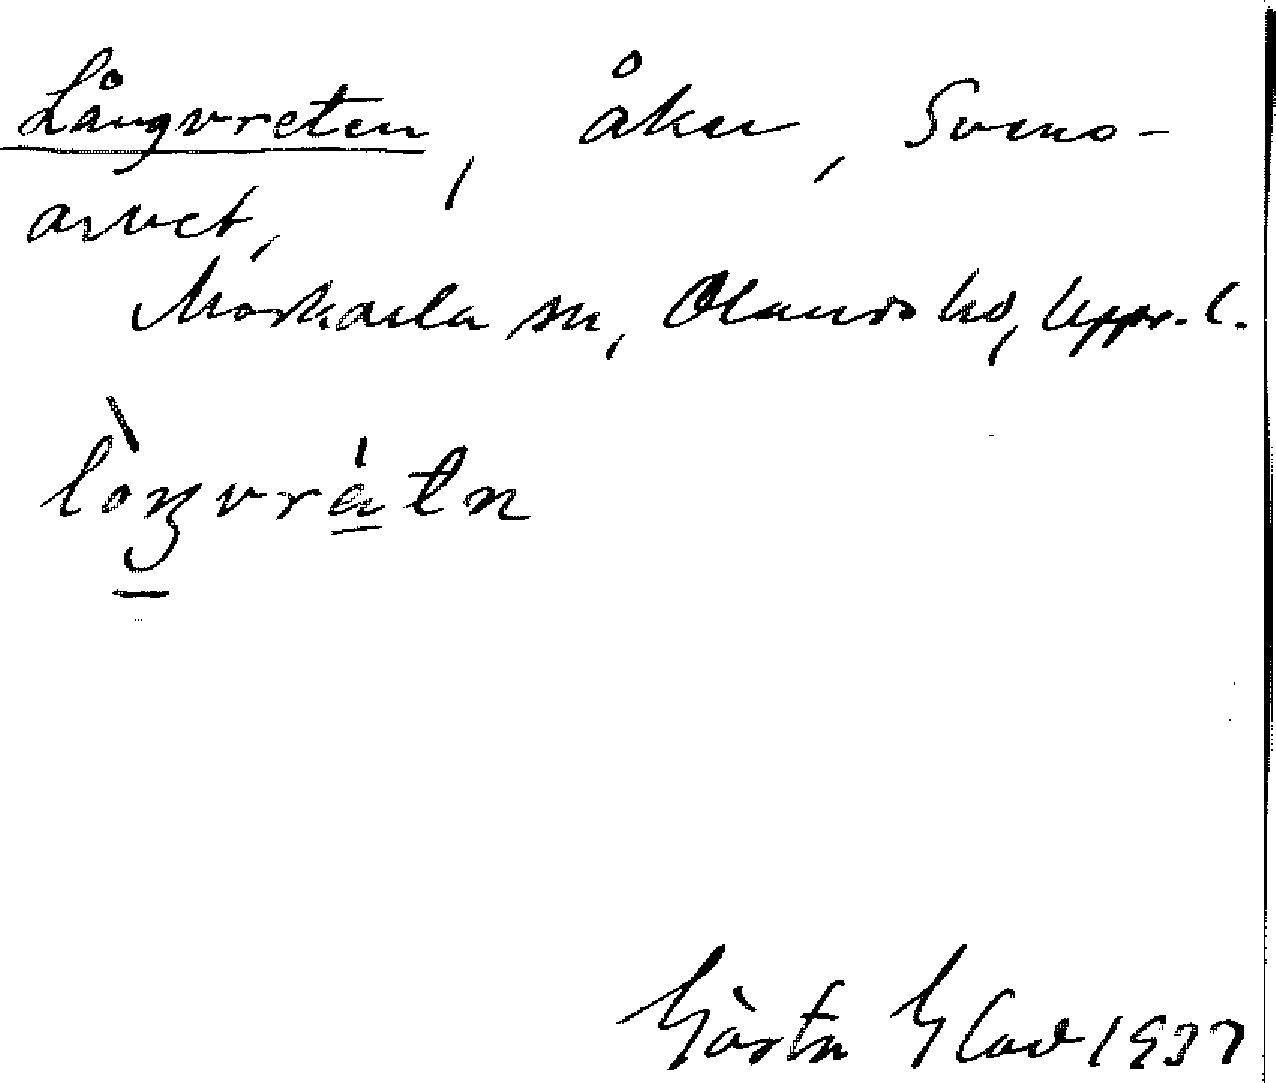 Långvreten, åker, Svens-
arvet,
Morkarla sn, Olands hd, Uppl.
Gösta Glad 1937